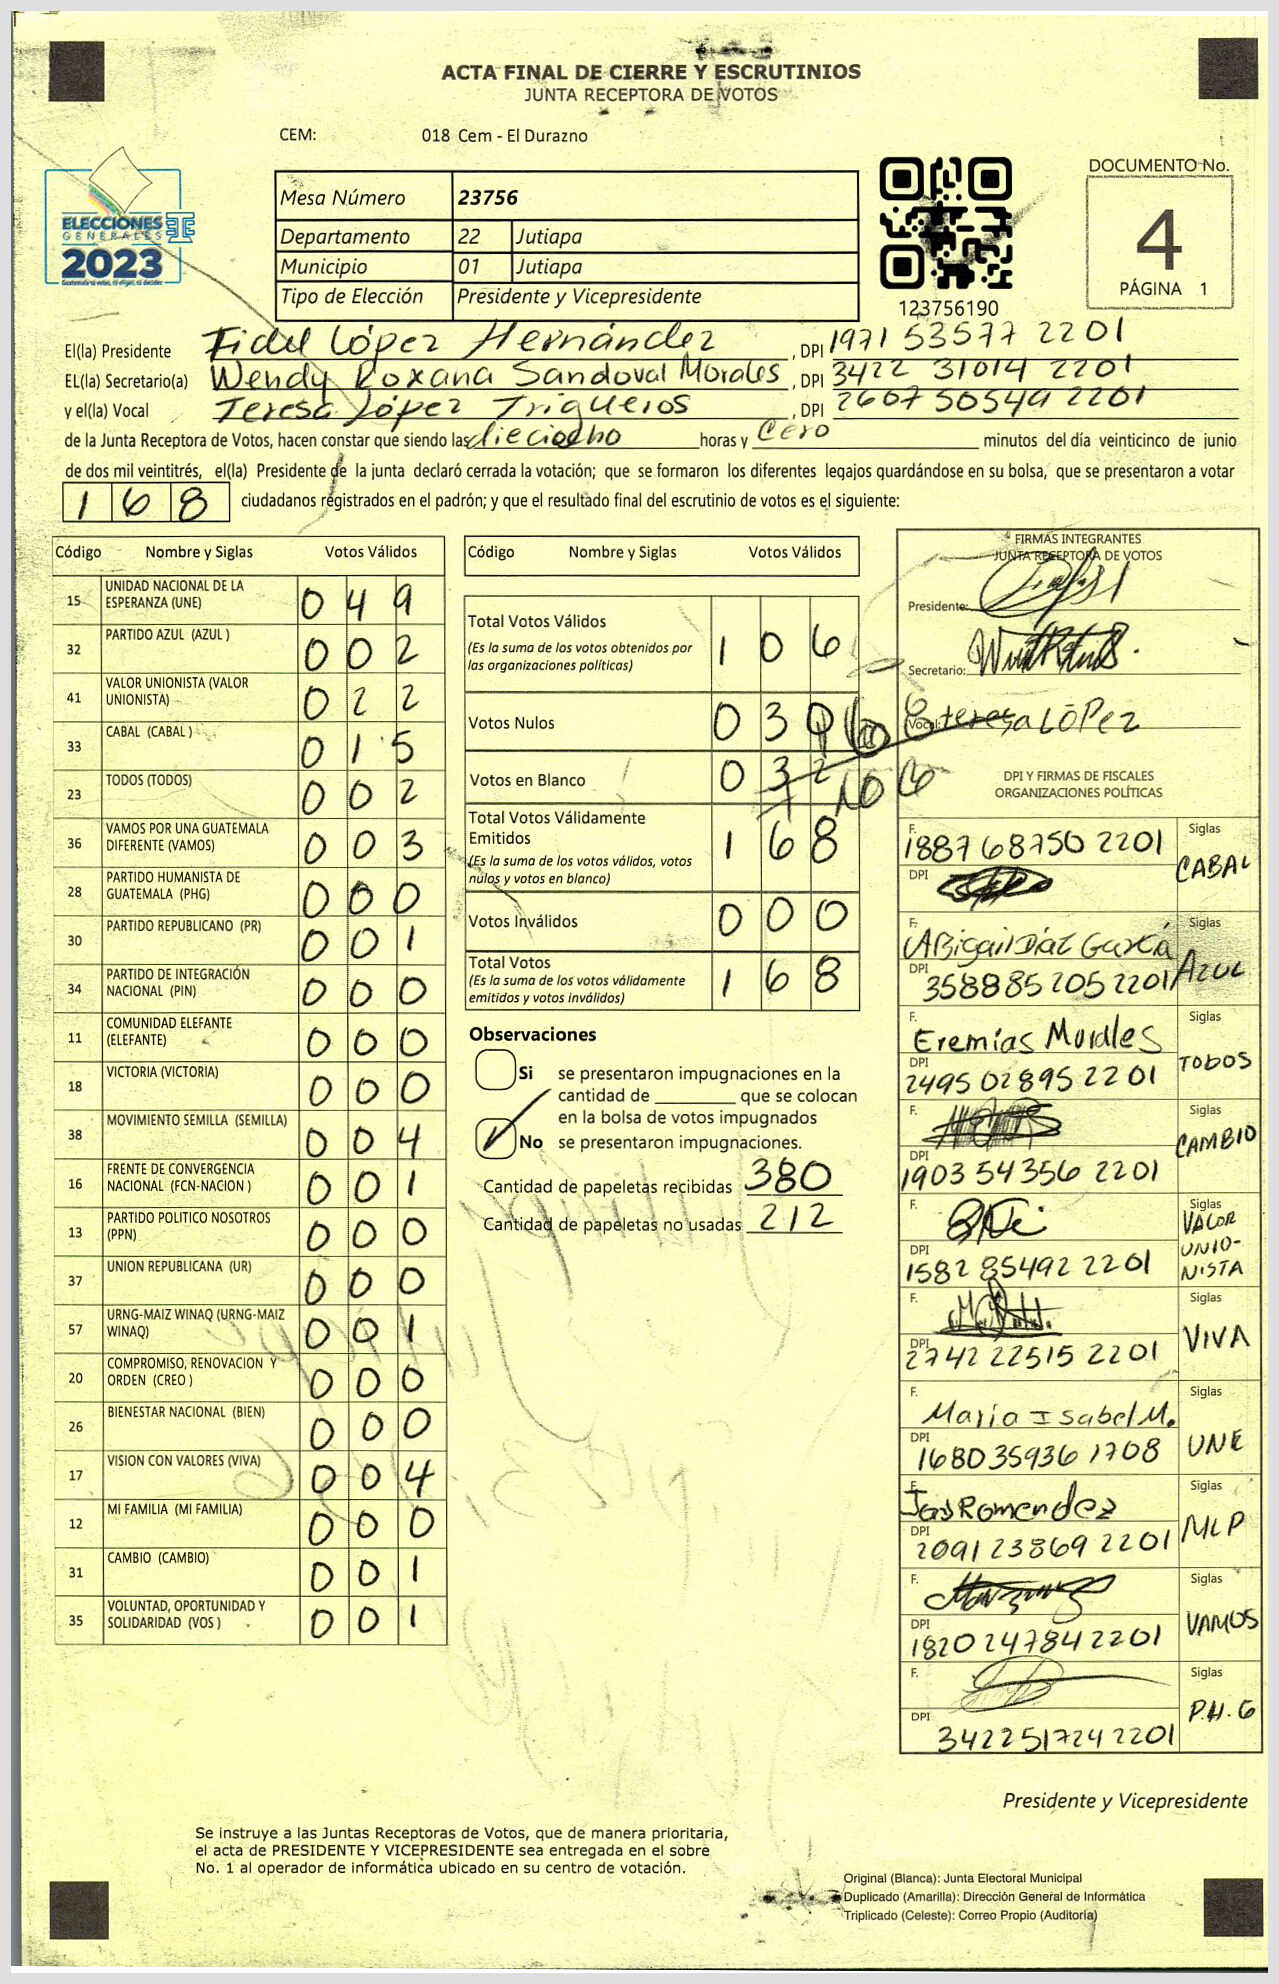 ACTA FINAL DE CIERRE Y ESCRUTINIOS
JUNTA RECEPTORA DE VOTOS
CEM: 018 Cem - El Durazno
ELECCIONES
GENERALES
2023
Mesa Número 23756
Departamento 22 Jutiapa
Municipio 01 Jutiapa
Tipo de Elección Presidente y Vicepresidente
123756190
DOCUMENTO No.
4
PÁGINA 1
El(la) Presidente Fidel López Hernández, DPI 1971 53577 2201
EL(la) Secretario(a) Wendy Roxana Sandoval Morales, DPI 3422 31014 2201
y el(la) Vocal Teresa López Trigueros, DPI 2607 50549 2201
de la Junta Receptora de Votos, hacen constar que siendo las dieciocho horas y cero minutos del día veinticinco de junio
de dos mil veintitrés, el(la) Presidente de la junta declaró cerrada la votación; que se formaron los diferentes legajos quardándose en su bolsa, que se presentaron a votar
168 ciudadanos registrados en el padrón; y que el resultado final del escrutinio de votos es el siguiente:
Código Nombre y Siglas Votos Válidos
15 UNIDAD NACIONAL DE LA ESPERANZA (UNE) 0 4 9
32 PARTIDO AZUL (AZUL ) 0 0 2
41 VALOR UNIONISTA (VALOR UNIONISTA) 0 2 2
33 CABAL (CABAL ) 0 1 5
23 TODOS (TODOS) 0 0 2
36 VAMOS POR UNA GUATEMALA DIFERENTE (VAMOS) 0 0 3
28 PARTIDO HUMANISTA DE GUATEMALA (PHG) 0 0 0
30 PARTIDO REPUBLICANO (PR) 0 0 1
34 PARTIDO DE INTEGRACIÓN NACIONAL (PIN) 0 0 0
11 COMUNIDAD ELEFANTE (ELEFANTE) 0 0 0
18 VICTORIA (VICTORIA) 0 0 0
38 MOVIMIENTO SEMILLA (SEMILLA) 0 0 4
16 FRENTE DE CONVERGENCIA NACIONAL (FCN-NACION ) 0 0 1
13 PARTIDO POLITICO NOSOTROS (PPN) 0 0 0
37 UNION REPUBLICANA (UR) 0 0 0
57 URNG-MAIZ WINAQ (URNG-MAIZ WINAQ) 0 0 1
20 COMPROMISO, RENOVACION Y ORDEN (CREO ) 0 0 0
26 BIENESTAR NACIONAL (BIEN) 0 0 0
17 VISION CON VALORES (VIVA) 0 0 4
12 MI FAMILIA (MI FAMILIA) 0 0 0
31 CAMBIO (CAMBIO) 0 0 1
35 VOLUNTAD, OPORTUNIDAD Y SOLIDARIDAD (VOS ) 0 0 1
Código Nombre y Siglas Votos Válidos
Total Votos Válidos 1 0 6
(Es la suma de los votos obtenidos por
las organizaciones políticas)
Votos Nulos 0 3
Votos en Blanco 0 3 2
Total Votos Válidamente
Emitidos 1 6 8
(Es la suma de los votos válidos, votos
nulos y votos en blanco)
Votos Inválidos 0 0 0
Total Votos 1 6 8
(Es la suma de los votos válidamente
emitidos y votos inválidos)
Observaciones
Si se presentaron impugnaciones en la
cantidad de ________ que se colocan
en la bolsa de votos impugnados
No se presentaron impugnaciones.
Cantidad de papeletas recibidas 380
Cantidad de papeletas no usadas 212
FIRMAS INTEGRANTES
JUNTA RECEPTORA DE VOTOS
Presidente:
Secretario:
Vocal: teresa LÓPez
DPI Y FIRMAS DE FISCALES
ORGANIZACIONES POLÍTICAS
F. 1887 68750 2201 Siglas
DPI CABAL
F. Abigail Díaz García Siglas
DPI 3588852052201 AZUL
F. Eremías Morales Siglas
DPI 2495 02895 2201 TODOS
F. Siglas
DPI 1903 54356 2201 CAMBIO
F. Siglas
DPI 1582 85492 2201 VALOR UNIO-NISTA
F. Siglas
DPI 2742 22515 2201 VIVA
F. Maria Isabel M. Siglas
DPI 1680 35936 1708 UNE
F. Siglas
DPI 2091 23869 2201 MLP
F. Siglas
DPI 1820 24784 2201 VAMOS
F. Siglas
DPI 3422517242201 P.H.G
Presidente y Vicepresidente
Se instruye a las Juntas Receptoras de Votos, que de manera prioritaria,
el acta de PRESIDENTE Y VICEPRESIDENTE sea entregada en el sobre
No. 1 al operador de informática ubicado en su centro de votación.
Original (Blanca): Junta Electoral Municipal
Duplicado (Amarilla): Dirección General de Informática
Triplicado (Celeste): Correo Propio (Auditoría)